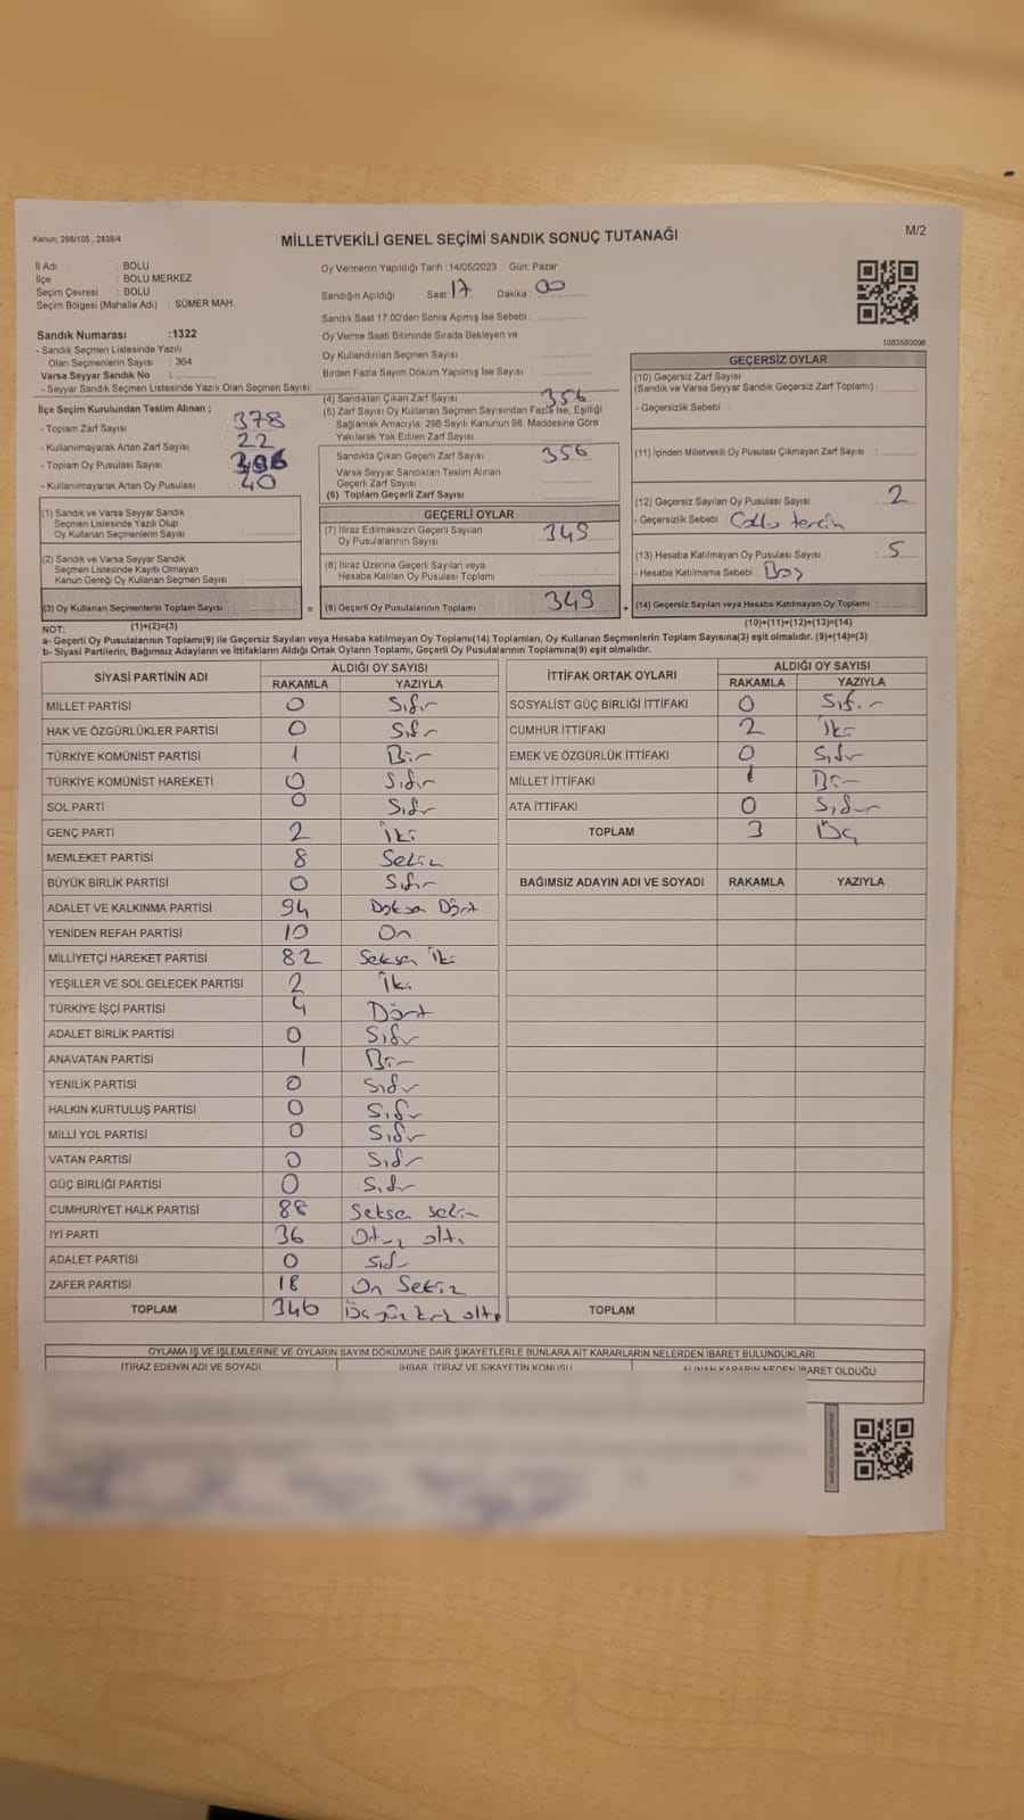 Kanun: 298/105 , 2839/4
MİLLETVEKİLİ GENEL SEÇİMİ SANDIK SONUÇ TUTANAĞI
M/2
İl Adı : BOLU
İlçe : BOLU MERKEZ
Seçim Çevresi : BOLU
Seçim Bölgesi (Mahalle Adı) : SÜMER MAH.
Sandık Numarası :1322
- Sandık Seçmen Listesinde Yazılı
Olan Seçmenlerin Sayısı : 364
Varsa Seyyar Sandık No :
- Seyyar Sandık Seçmen Listesinde Yazılı Olan Seçmen Sayısı:
İlçe Seçim Kurulundan Teslim Alınan ;
- Toplam Zarf Sayısı 378
- Kullanılmayarak Artan Zarf Sayısı 22
- Toplam Oy Pusulası Sayısı
- Kullanılmayarak Artan Oy Pusulası : 40
(1) Sandık ve Varsa Seyyar Sandık
Seçmen Listesinde Yazılı Olup
Oy Kullanan Seçmenlerin Sayısı
(2) Sandık ve Varsa Seyyar Sandık
Seçmen Listesinde Kayıtlı Olmayan
Kanun Gereği Oy Kullanan Seçmen Sayısı
(3) Oy Kullanan Seçmenlerin Toplam Sayısı
(1)+(2)=(3)
Oy Vermenin Yapıldığı Tarih :14/05/2023 Gün: Pazar
Sandığın Açıldığı Saat: 17 Dakika : 00
Sandık Saat 17.00'den Sonra Açmış İse Sebebi
Oy Verme Saati Bitiminde Sırada Bekleyen ve
Oy Kullandırılan Seçmen Sayısı
Birden Fazla Sayım Döküm Yapılmış İse Sayısı
(4) Sandıktan Çıkan Zarf Sayısı 356
(5) Zarf Sayısı Oy Kullanan Seçmen Sayısından Fazla İse, Eşitliği
Sağlamak Amacıyla, 298 Sayılı Kanunun 98. Maddesine Göre
Yakılarak Yok Edilen Zarf Sayısı
Sandıkta Çıkan Geçerli Zarf Sayısı 356
Varsa Seyyar Sandıktan Teslim Alınan
Geçerli Zarf Sayısı
(6) Toplam Geçerli Zarf Sayısı
GEÇERLİ OYLAR
(7) İtiraz Edilmeksizin Geçerli Sayılan
Oy Pusulalarının Sayısı 349
(8) İtiraz Üzerine Geçerli Sayılan veya
Hesaba Katılan Oy Pusulası Toplamı
= (9) Geçerli Oy Pusulalarının Toplamı 349
1083580098
GEÇERSİZ OYLAR
(10) Geçersiz Zarf Sayısı
(Sandık ve Varsa Seyyar Sandık Geçersiz Zarf Toplamı)
- Geçersizlik Sebebi
(11) İçinden Milletvekili Oy Pusulası Çıkmayan Zarf Sayısı :
(12) Geçersiz Sayılan Oy Pusulası Sayısı 2
- Geçersizlik Sebebi Çoklu tercih
(13) Hesaba Katılmayan Oy Pusulası Sayısı : 5
- Hesaba Katılmama Sebebi : Boş
+ (14) Geçersiz Sayılan veya Hesaba Katılmayan Oy Toplamı
(10)+(11)+(12)+(13)=(14)
NOT:
a- Geçerli Oy Pusulalarının Toplamı(9) ile Geçersiz Sayılan veya Hesaba katılmayan Oy Toplamı(14) Toplamları, Oy Kullanan Seçmenlerin Toplam Sayısına(3) eşit olmalıdır. (9)+(14)=(3)
b- Siyasi Partilerin, Bağımsız Adayların ve İttifakların Aldığı Ortak Oyların Toplamı, Geçerli Oy Pusulalarının Toplamına(9) eşit olmalıdır.
SİYASİ PARTİNİN ADI ALDIĞI OY SAYISI
RAKAMLA YAZIYLA
MİLLET PARTİSİ 0 Sıfır
HAK VE ÖZGÜRLÜKLER PARTİSİ 0 Sıfır
TÜRKİYE KOMÜNİST PARTİSİ 1 Bir
TÜRKİYE KOMÜNİST HAREKETİ 0 Sıfır
SOL PARTİ 0 Sıfır
GENÇ PARTİ 2 İki
MEMLEKET PARTİSİ 8 Sekiz
BÜYÜK BİRLİK PARTİSİ 0 Sıfır
ADALET VE KALKINMA PARTİSİ 94 Doksan Dört
YENİDEN REFAH PARTİSİ 10 On
MİLLİYETÇİ HAREKET PARTİSİ 82 Seksen İki
YEŞİLLER VE SOL GELECEK PARTİSİ 2 İki
TÜRKİYE İŞÇİ PARTİSİ 4 Dört
ADALET BİRLİK PARTİSİ 0 Sıfır
ANAVATAN PARTİSİ 1 Bir
YENİLİK PARTİSİ 0 Sıfır
HALKIN KURTULUŞ PARTİSİ 0 Sıfır
MİLLİ YOL PARTİSİ 0 Sıfır
VATAN PARTİSİ 0 Sıfır
GÜÇ BİRLİĞİ PARTİSİ 0 Sıfır
CUMHURİYET HALK PARTİSİ 88 Seksen sekiz
İYİ PARTİ 36 Otuz altı
ADALET PARTİSİ 0 Sıfır
ZAFER PARTİSİ 18 On Sekiz
TOPLAM 346 Üç yüz kırk altı
İTTİFAK ORTAK OYLARI ALDIĞI OY SAYISI
RAKAMLA YAZIYLA
SOSYALİST GÜÇ BİRLİĞİ İTTİFAKI 0 Sıfır
CUMHUR İTTİFAKI 2 İki
EMEK VE ÖZGÜRLÜK İTTİFAKI 0 Sıfır
MİLLET İTTİFAKI 1 Bir
ATA İTTİFAKI 0 Sıfır
TOPLAM 3 Üç
BAĞIMSIZ ADAYIN ADI VE SOYADI RAKAMLA YAZIYLA
TOPLAM
OYLAMA İŞ VE İŞLEMLERİNE VE OYLARIN SAYIM DÖKÜMÜNE DAİR ŞİKAYETLERLE BUNLARA AİT KARARLARIN NELERDEN İBARET BULUNDUKLARI
İTİRAZ EDENİN ADI VE SOYADI İHBAR, İTİRAZ VE ŞİKAYETİN KONUSU ALINAN KARARIN NEDEN İBARET OLDUĞU